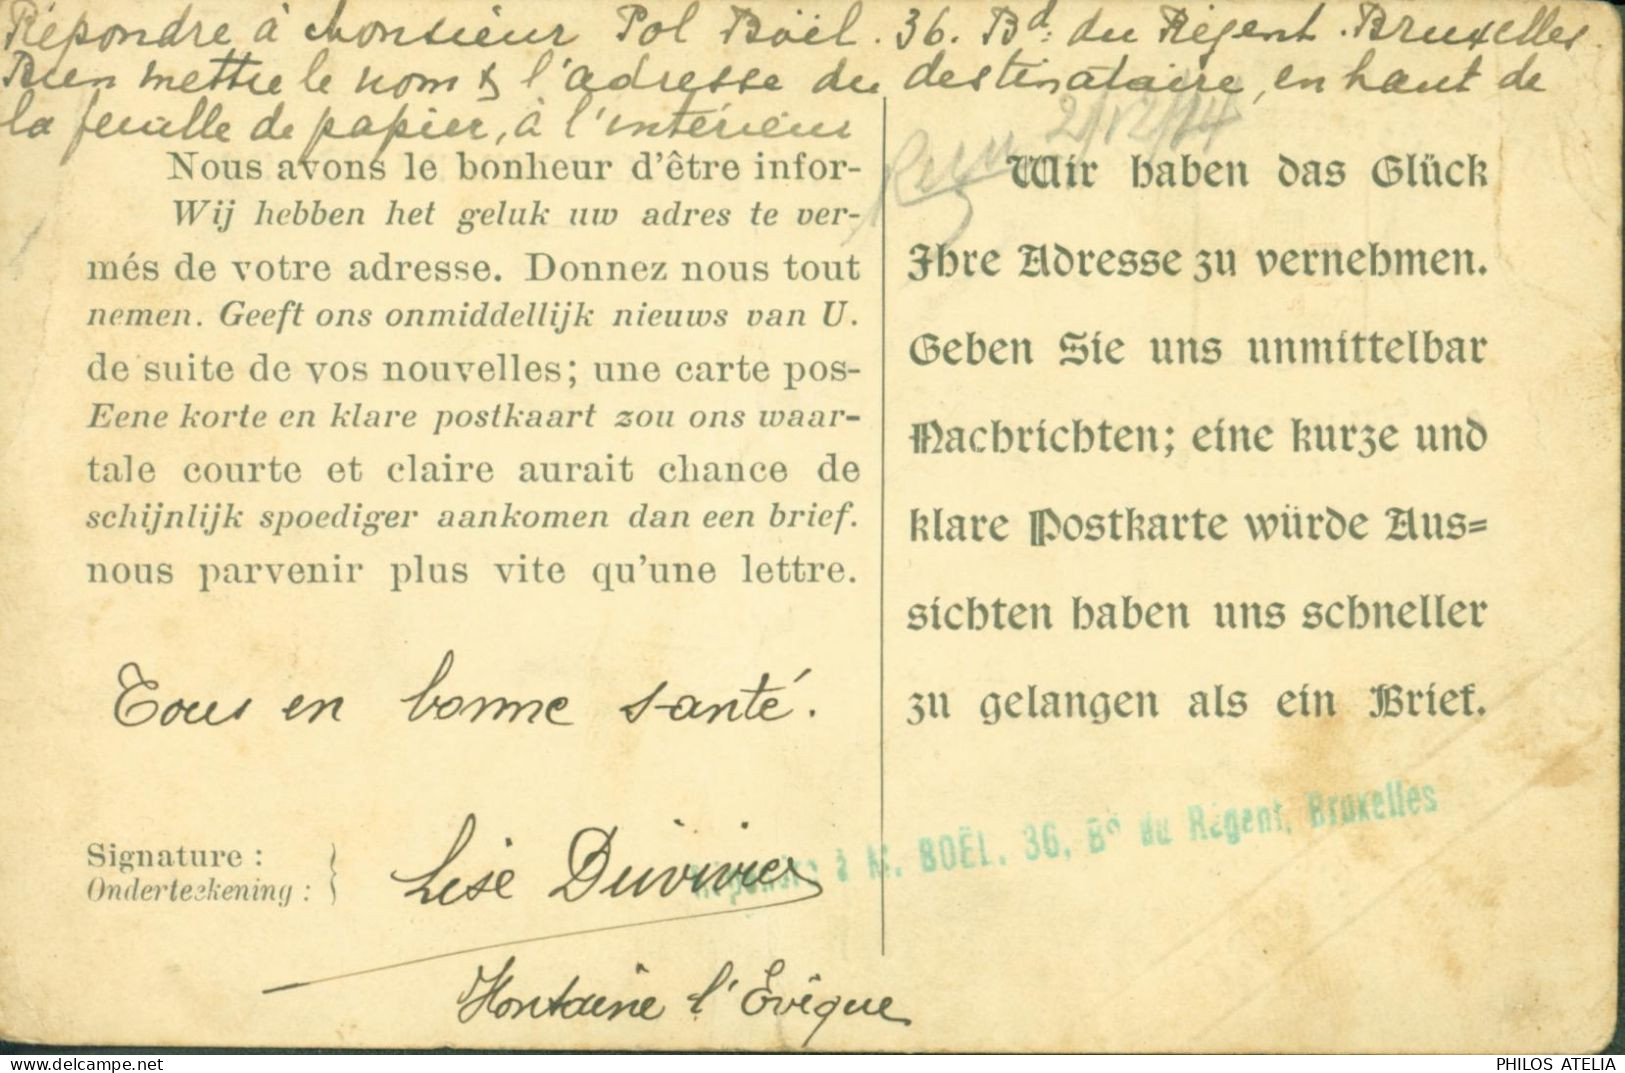 Répondre à Monsieur Pol Boël. 36. Bd. du Régent. Bruxelles.
Bien mettre le nom & l'adresse du destinataire, en haut de
la feuille de papier, à l'intérieur
2/12/14
Nous avons le bonheur d'être infor-
Wij hebben het geluk uw adres te ver-
més de votre adresse. Donnez nous tout
nemen. Geeft ons onmiddellijk nieuws van U.
de suite de vos nouvelles; une carte pos-
Eene korte en klare postkaart zou ons waar-
tale courte et claire aurait chance de
schijnlijk spoediger aankomen dan een brief.
nous parvenir plus vite qu'une lettre.
Tous en bonne santé.
Signature :
Onderteekening :
Lise Duvivier
Fontaine l'Evêque
Wir haben das Glück
Ihre Adresse zu vernehmen.
Geben Sie uns unmittelbar
Nachrichten; eine kurze und
klare Postkarte würde Aus=
sichten haben uns schneller
zu gelangen als ein Brief.
Répondre à M. BOËL, 36, Bd du Régent, Bruxelles
PHILOS ATELIA